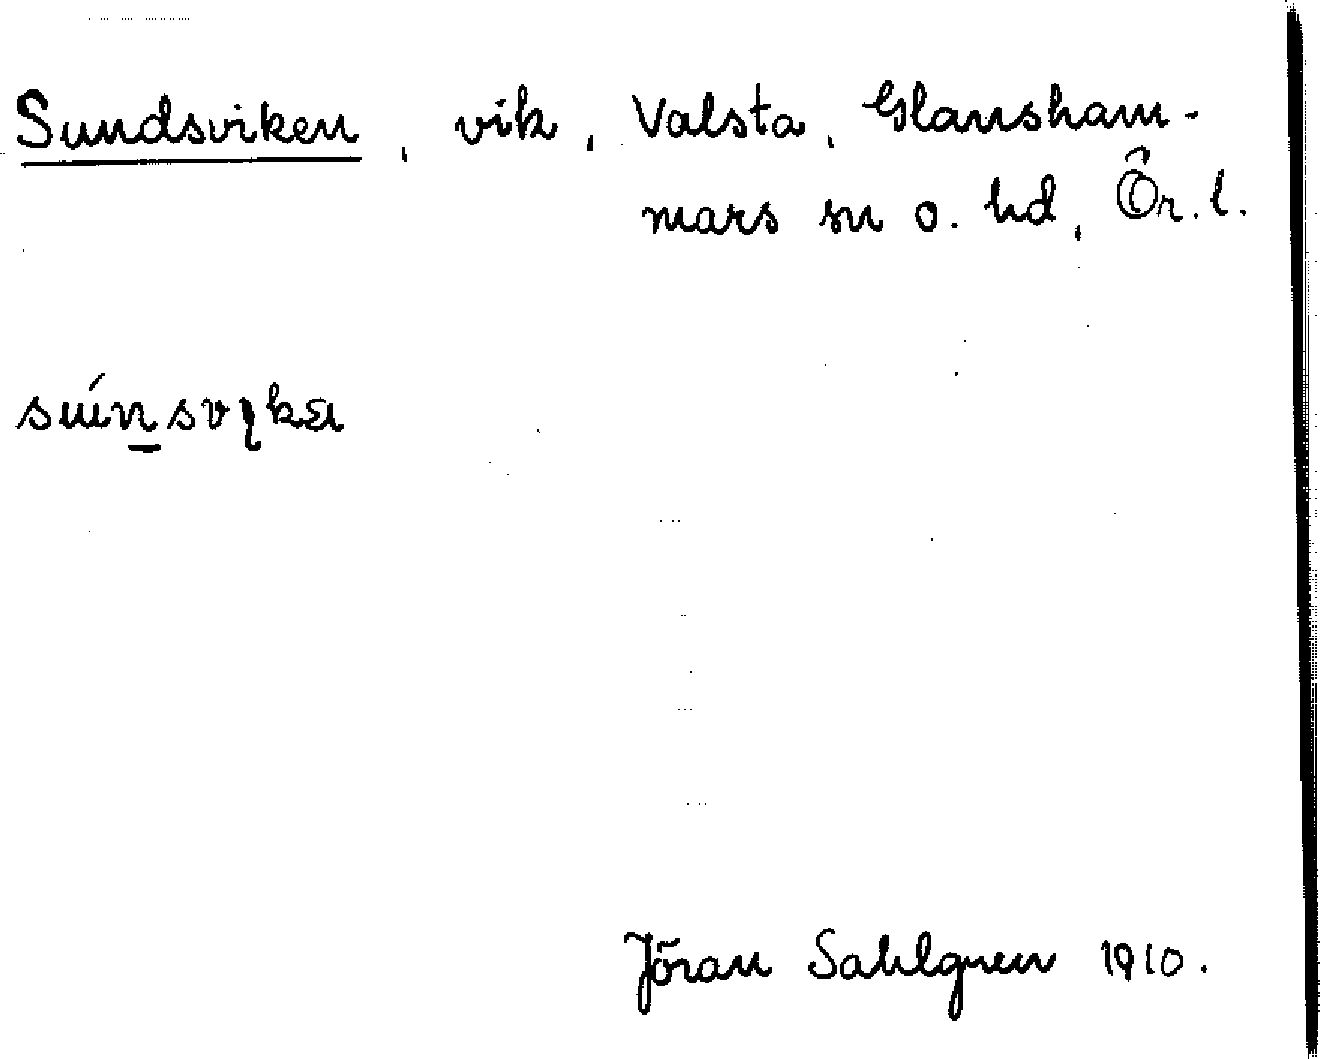 Sundsviken, vik, Valsta, Glansham-
mars sn o. hd, Ör. l.
Jöran Sahlgren 1910.